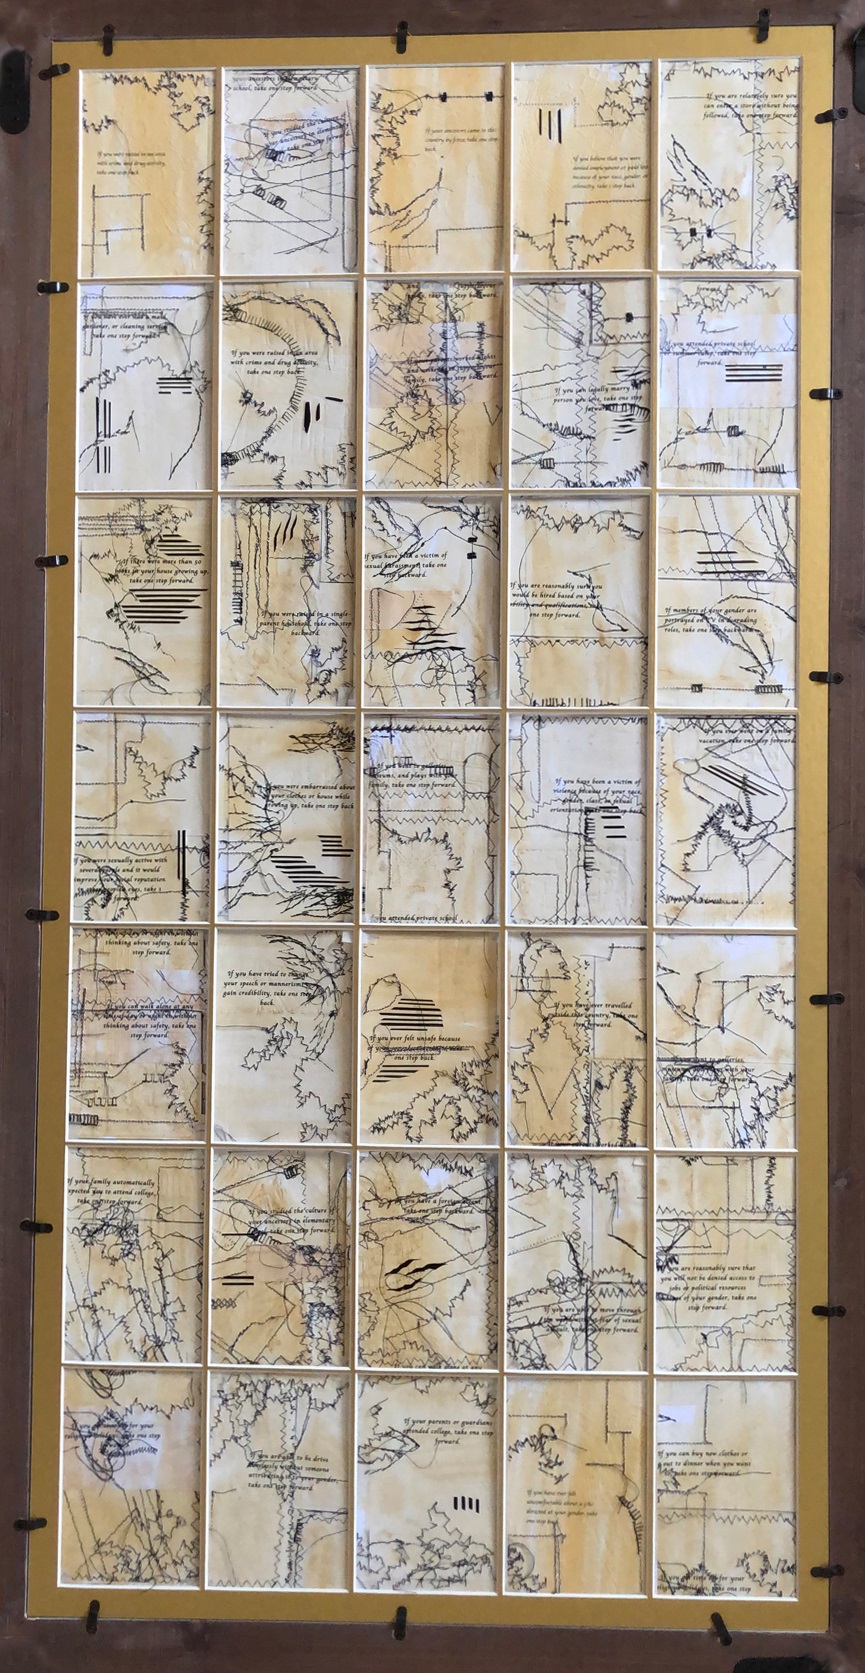 If you were raised in an area
with crime and drug activity,
take one step back.
your ancestors in elementary
school, take one step forward.
If you studied the culture
ancestors in elementary
If your ancestors came to this
country by force, take one step
back.
If you believe that you were
denied employment or paid less
because of your race, gender, or
ethnicity, take 1 step back.
If you are relatively sure you
can enter a store without being
followed, take one step forward.
If you have ever had a maid,
gardener, or cleaning service,
take one step forward.
If you were raised in an area
with crime and drug activity,
take one step back.
take one step backward.
worked nights
and
family, take one step
backward.
If you can legally marry the
person you love, take one step
forward.
forward.
If you attended private school
or summer camp, take one step
forward.
If there were more than 50
books in your house growing up,
take one step forward.
If you were raised in a single
parent household, take one step
backward.
If you have been a victim of
sexual harassment, take one
step backward.
If you are reasonably sure you
would be hired based on your
ability and qualifications, take
one step forward.
If members of your gender are
portrayed on TV in degrading
roles, take one step backward.
If you were sexually active with
several people and it would
improve your social reputation
in other people's eyes, take 1
forward.
you were embarrassed about
your clothes or house while
growing up, take one step back
If you went to galleries,
museums, and plays with your
family, take one step forward.
you attended private school
If you have been a victim of
violence because of your race,
gender, class, or sexual
orientation,
If you ever went on a family
vacation, take one step forward.
of day or night without
thinking about safety, take one
step forward.
If you can walk alone at any
of day or night without
thinking about safety, take one
step forward.
If you have tried to change
your speech or mannerisms to
gain credibility, take one step
back.
If you ever felt unsafe because
of your
one step back.
If you have ever travelled
outside this country, take one
step forward.
If you went to galleries,
museums, and plays with your
family, take one step forward.
worked
If your family automatically
expected you to attend college,
take one step forward.
If you studied the culture of
your ancestors in elementary
take one step forward.
If you have a foreign accent,
take one step backward.
If you are able to move through
the world without fear of sexual
assault, take one step forward.
If you are reasonably sure that
you will not be denied access to
jobs or political resources
because of your gender, take one
step forward.
If you get time off for your
religious holidays, take one step
If you are able to be drive
carelessly without someone
attributing it to your gender,
take one step forward.
If your parents or guardians
attended college, take one step
forward.
If you have ever felt
uncomfortable about a joke
directed at your gender, take
one step back.
If you can buy new clothes or
out to dinner when you want
to, take one step forward.
If you get time off for your
religious holidays, take one step